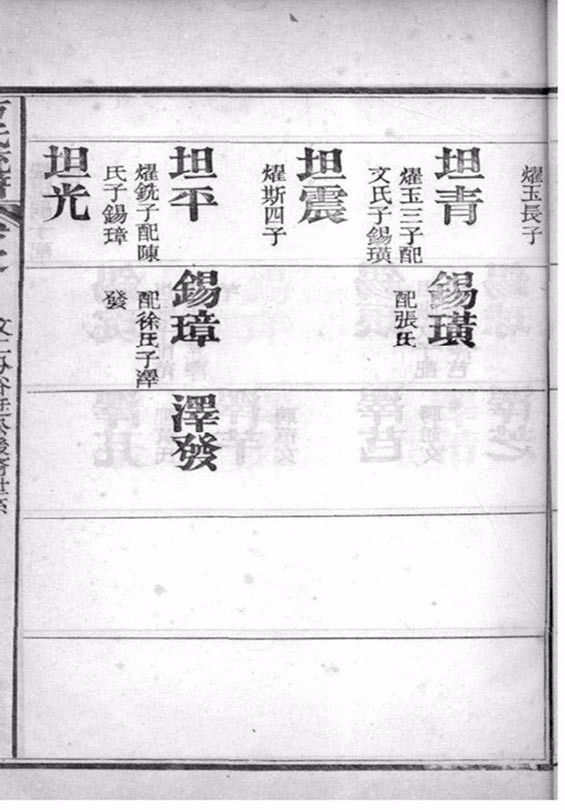 燿玉長子
坦青
燿玉三子配
文氏子錫璜
錫璜
配張氏
坦震
燿斯四子
坦平
燿銑子配陳
氏子錫璋
錫璋
配徐氏子澤
發
澤發
坦光